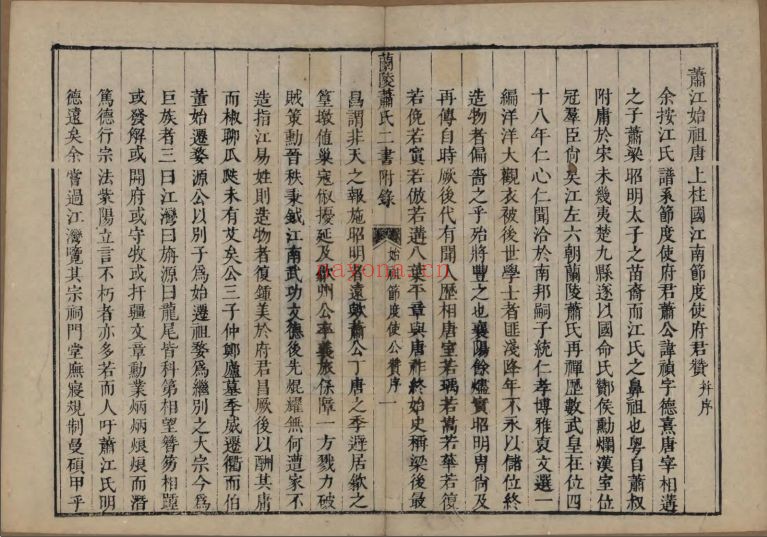 蕭江始祖唐上桂國江南節度使府君贊 并序
余按江氏譜系節度使府君蕭公諱禎字德熹唐宰相遘
之子蕭梁昭明太子之苗裔而江氏之鼻祖也粵自蕭叔
附庸於宋未幾夷楚九縣遂以國命氏酇侯勳爛漢室位
冠羣臣尙矣江左六朝蘭陵蕭氏再禪歷數武皇在位四
十八年仁心仁聞洽於南邦嗣子統仁孝博雅裒文選一
編洋洋大觀衣被後世學士者匪淺降年不永以儲位終
造物者偏嗇之乎殆將豐之也襄陽餘燼實昭明胄尙及
再傳自時厥後代有聞人歷相唐室若瑀若嵩若華若復
若俛若寘若倣若遘八葉平章與唐祚終始史稱梁後最
蘭陵蕭氏二書附錄
始祖節度使公贊序 一
昌謂非天之報施昭明者遠歟蕭公丁唐之季避居歙之
篁墩值巢寇俶擾延及歙州公率義旅保障一方戮力破
賊策勳晉秩秉鉞江南武功文德後先焜耀無何遭家不
造指江易姓則造物者復鍾美於府君昌厥後以酬其庸
而椒聊瓜瓞未有艾矣公三子仲鄭廬墓季威遷衢而伯
董始遷婺源公以別子爲始遷祖婺爲繼別之大宗今爲
巨族者三曰江灣曰旃源曰龍尾皆科第相望簪笏相踵
或發解或開府或守牧或扞疆文章勳業炳炳烺烺而潛
篤德行宗法紫陽立言不朽者亦多若而人吁蕭江氏明
德遠矣余嘗過江灣覽其宗祠門堂廡寢規制曼碩甲乎